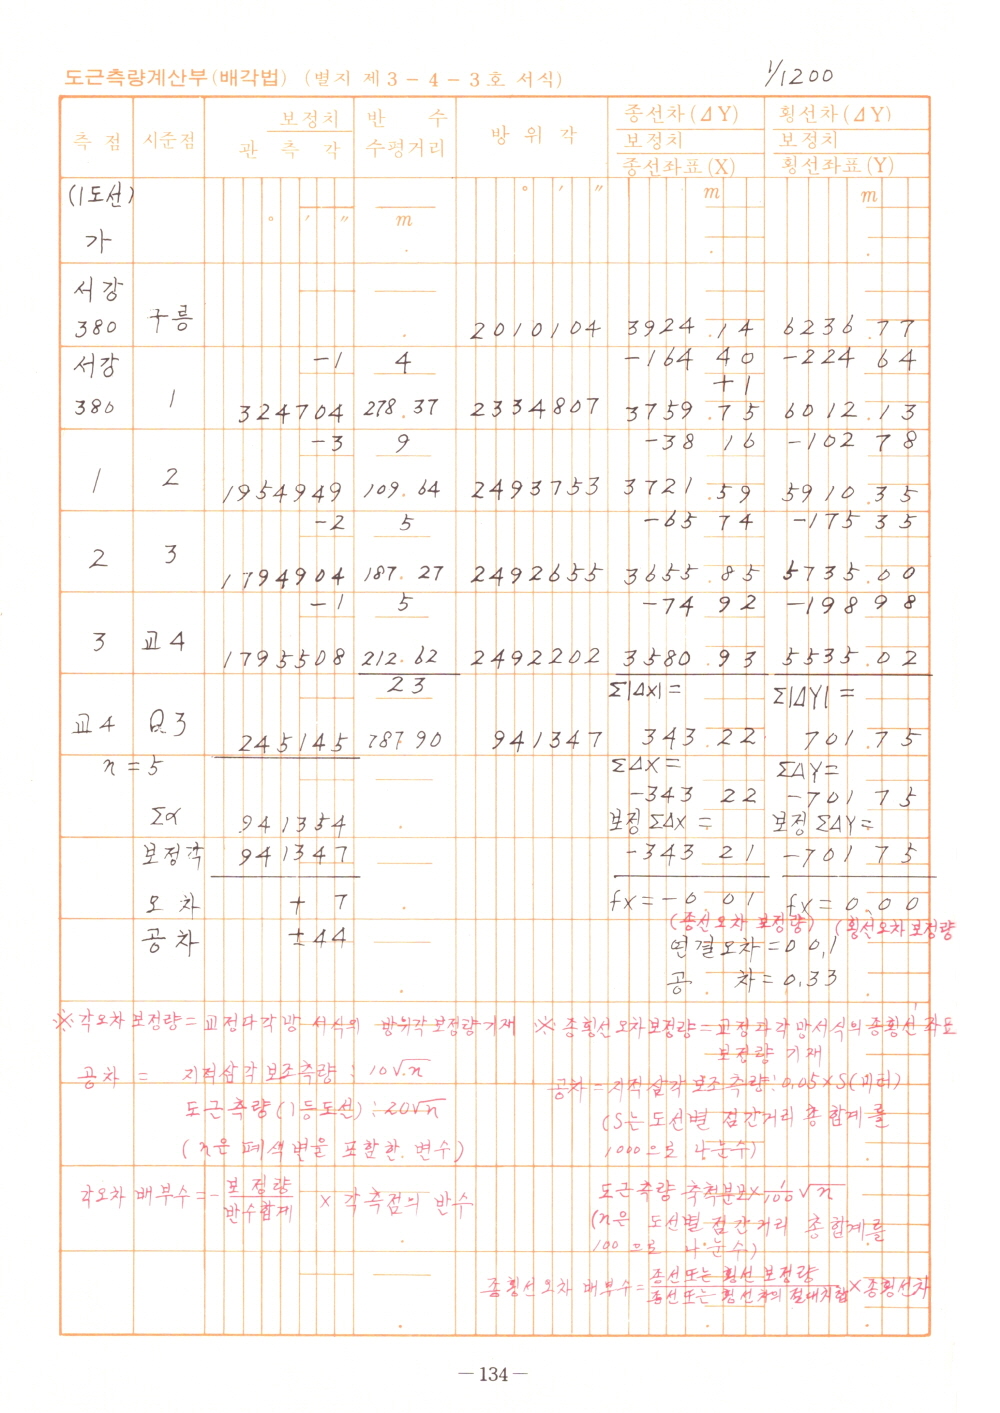 도근측량계산부(배각법) (별지 제3-4-3호 서식) 1/1200
측점 시준점 보정치 관측각 반수 수평거리 방위각 종선차(ΔY) 보정치 종선좌표(X) 횡선차(ΔY) 보정치 횡선좌표(Y)
(1도선) ° ′ ″ m m
가 ° ′ ″ m
서강
380 구릉 2010104 3924.14 6236.77
서강 -1 4 -164 40 -224 64
+1
380 1 324704 278.37 2334807 3759.75 6012.13
-3 9 -38 16 -102 78
1 2 1954949 109.64 2493753 3721.59 5910.35
-2 5 -65 74 -175 35
2 3 1794904 187.27 2492655 3655.85 5735.00
-1 5 -74 92 -198 98
3 교4 1795508 212.62 2492202 3580.93 5535.02
23 Σ|Δx|= Σ|ΔY|=
교4 Q.3 245145 787.90 941347 343.22 701.75
n=5 ΣΔX= ΣΔY=
-343 22 -701 75
Σα 941354 보정ΣΔx= 보정ΣΔY=
보정각 941347 -343 21 -701 75
오차 + 7 fx=-0.01 fx=0.00
(종선오차 보정량) (횡선오차보정량
공차 ±44 연결오차=00.1
공 차=0.33
※각오차보정량=교정다각망 서식의 방위각보정량기재 ※종횡선오차보정량=교정다각망서식의종횡선좌표
보정량 기재
공차 = 지적삼각보조측량 : 10√n 공차=지적삼각보조측량:0.05×S(미터)
도근측량(1등도선) : 20√n (S는 도선별 점간거리 총합계를
(n은 폐색변을 포함한 변수) 1000으로 나눈수)
각오차 배부수=-보정량/반수합계 × 각측점의 반수 도근측량 축척분모×1/100√n
(n은 도선별점간거리 총합계를
100으로 나눈수)
종횡선오차 배부수=종선또는 횡선 보정량/종선또는 횡선차의 절대치합×종횡선차
-134-